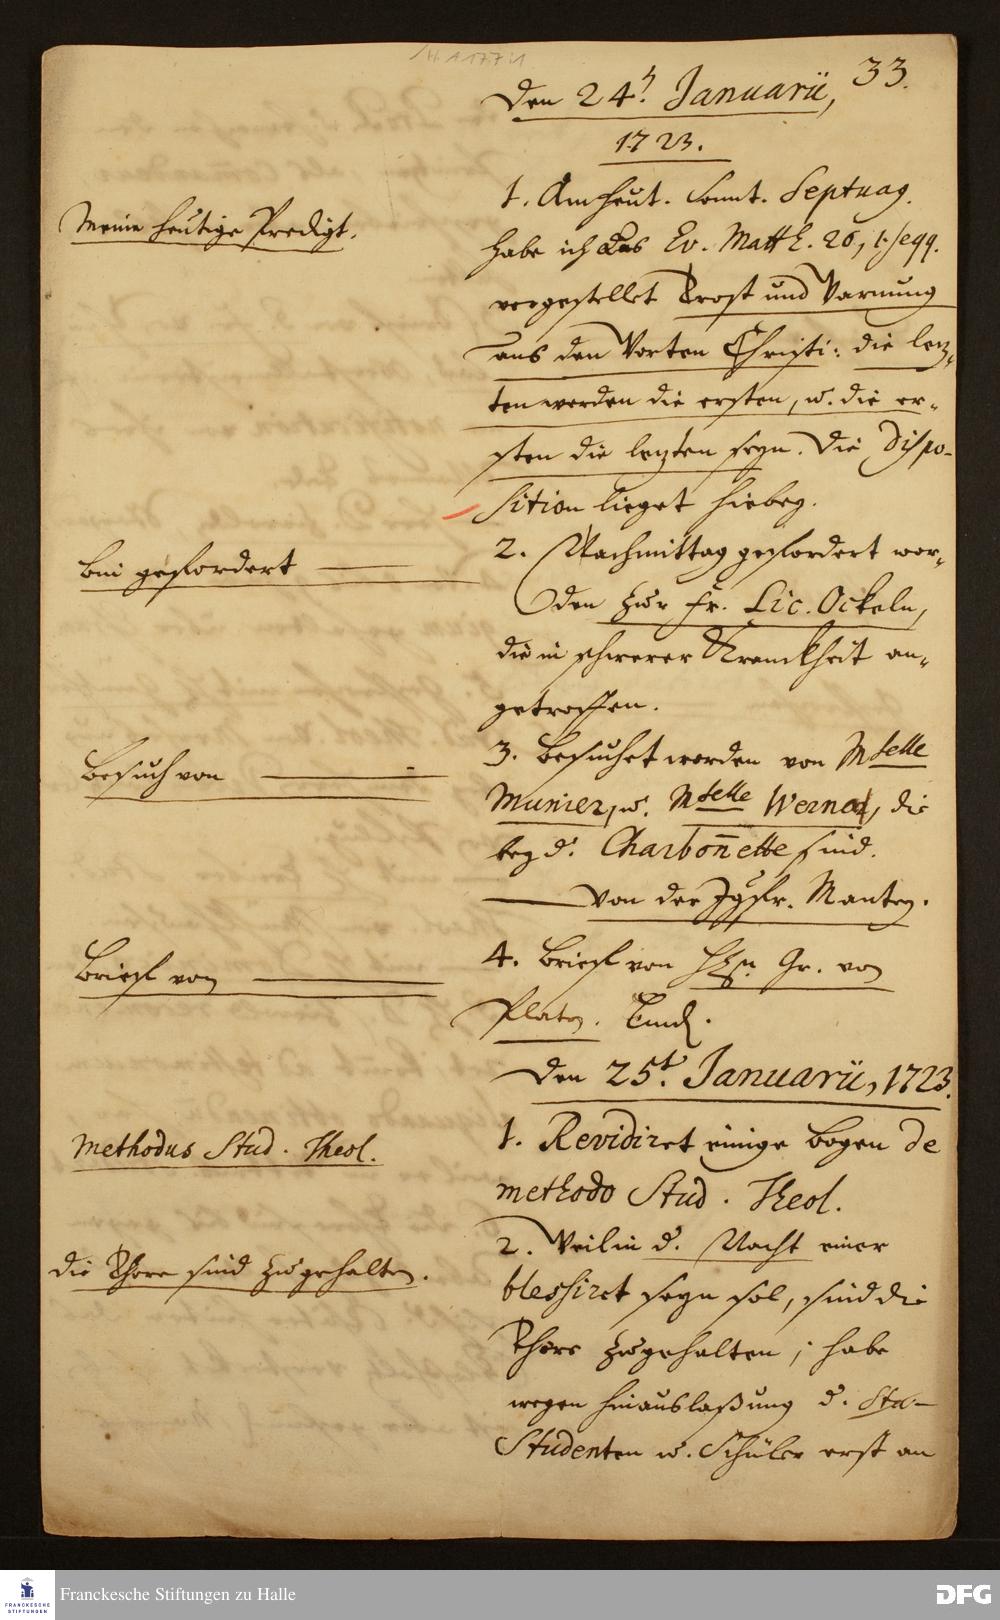 33.
Den 24t. Januarii,
1723.
Meine heutige Predigt.
1. Am heut. Sonnt. Septuag.
habe ich das Ev. Matth. 20, 1. seqq.
vorgestellet Trost und Warnung
aus den Worten Christi: die letz-
ten werden die ersten, u. die er-
sten die letzten seyn. Die Dispo-
sition lieget hiebey.
bin gefordert
2. Nachmittag gefordert wor-
den zur Fr. Lic. Ockeln,
die in schwerer Kranckheit an-
getroffen.
Besuch von
3. Besuchet worden von Mselle
Munier, u. Mselle Werner, die
bey d. Charbon̄ette sind.
von der Jgfr. Mantey.
Brief von
4. Brief von Hrn Gr. von
Platen.
Den 25t. Januarii, 1723.
Methodus Stud. Theol.
1. Revidiret einige bogen de
methodo Stud. Theol.
die Thore sind zugehalten.
2. Weil in d. Nacht einer
blessiret seyn sol, sind die
Thore zugehalten; habe
wegen hinauslaßung d. Stu-
Studenten u. Schüler erst an
Franckesche Stiftungen zu Halle
FRANCKESCHE
STIFTUNGEN
DFG